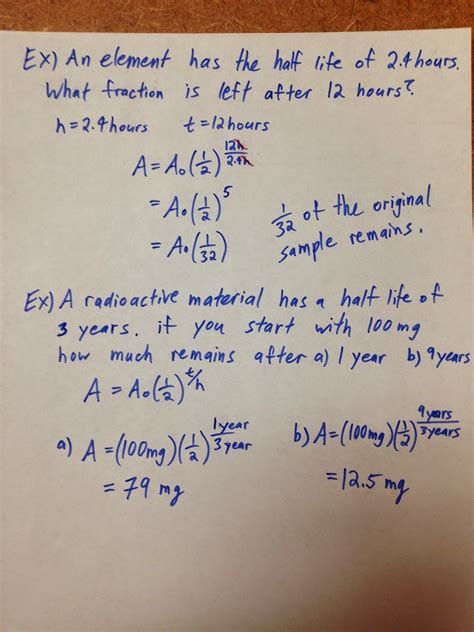 Ex) An element has the half life of 2.4 hours.
What fraction is left after 12 hours?
h = 2.4 hours t = 12 hours
A = A₀(1/2)^(12h/2.4h)
= A₀(1/2)^5
= A₀(1/32)
1/32 of the original
sample remains.
Ex) A radioactive material has a half life of
3 years. if you start with 100 mg
how much remains after a) 1 year b) 9 years
A = A₀(1/2)^(t/h)
a) A = (100mg)(1/2)^(1 year/3 year)
= 79 mg
b) A = (100mg)(1/2)^(9 years/3 years)
= 12.5 mg